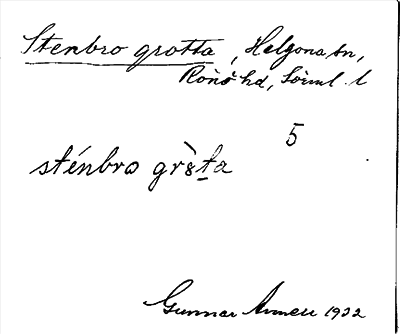 Stenbro grotta, Helgona sn,
Rönö hd, Sörml. l
5
sténbro gr
Gunnar 1932